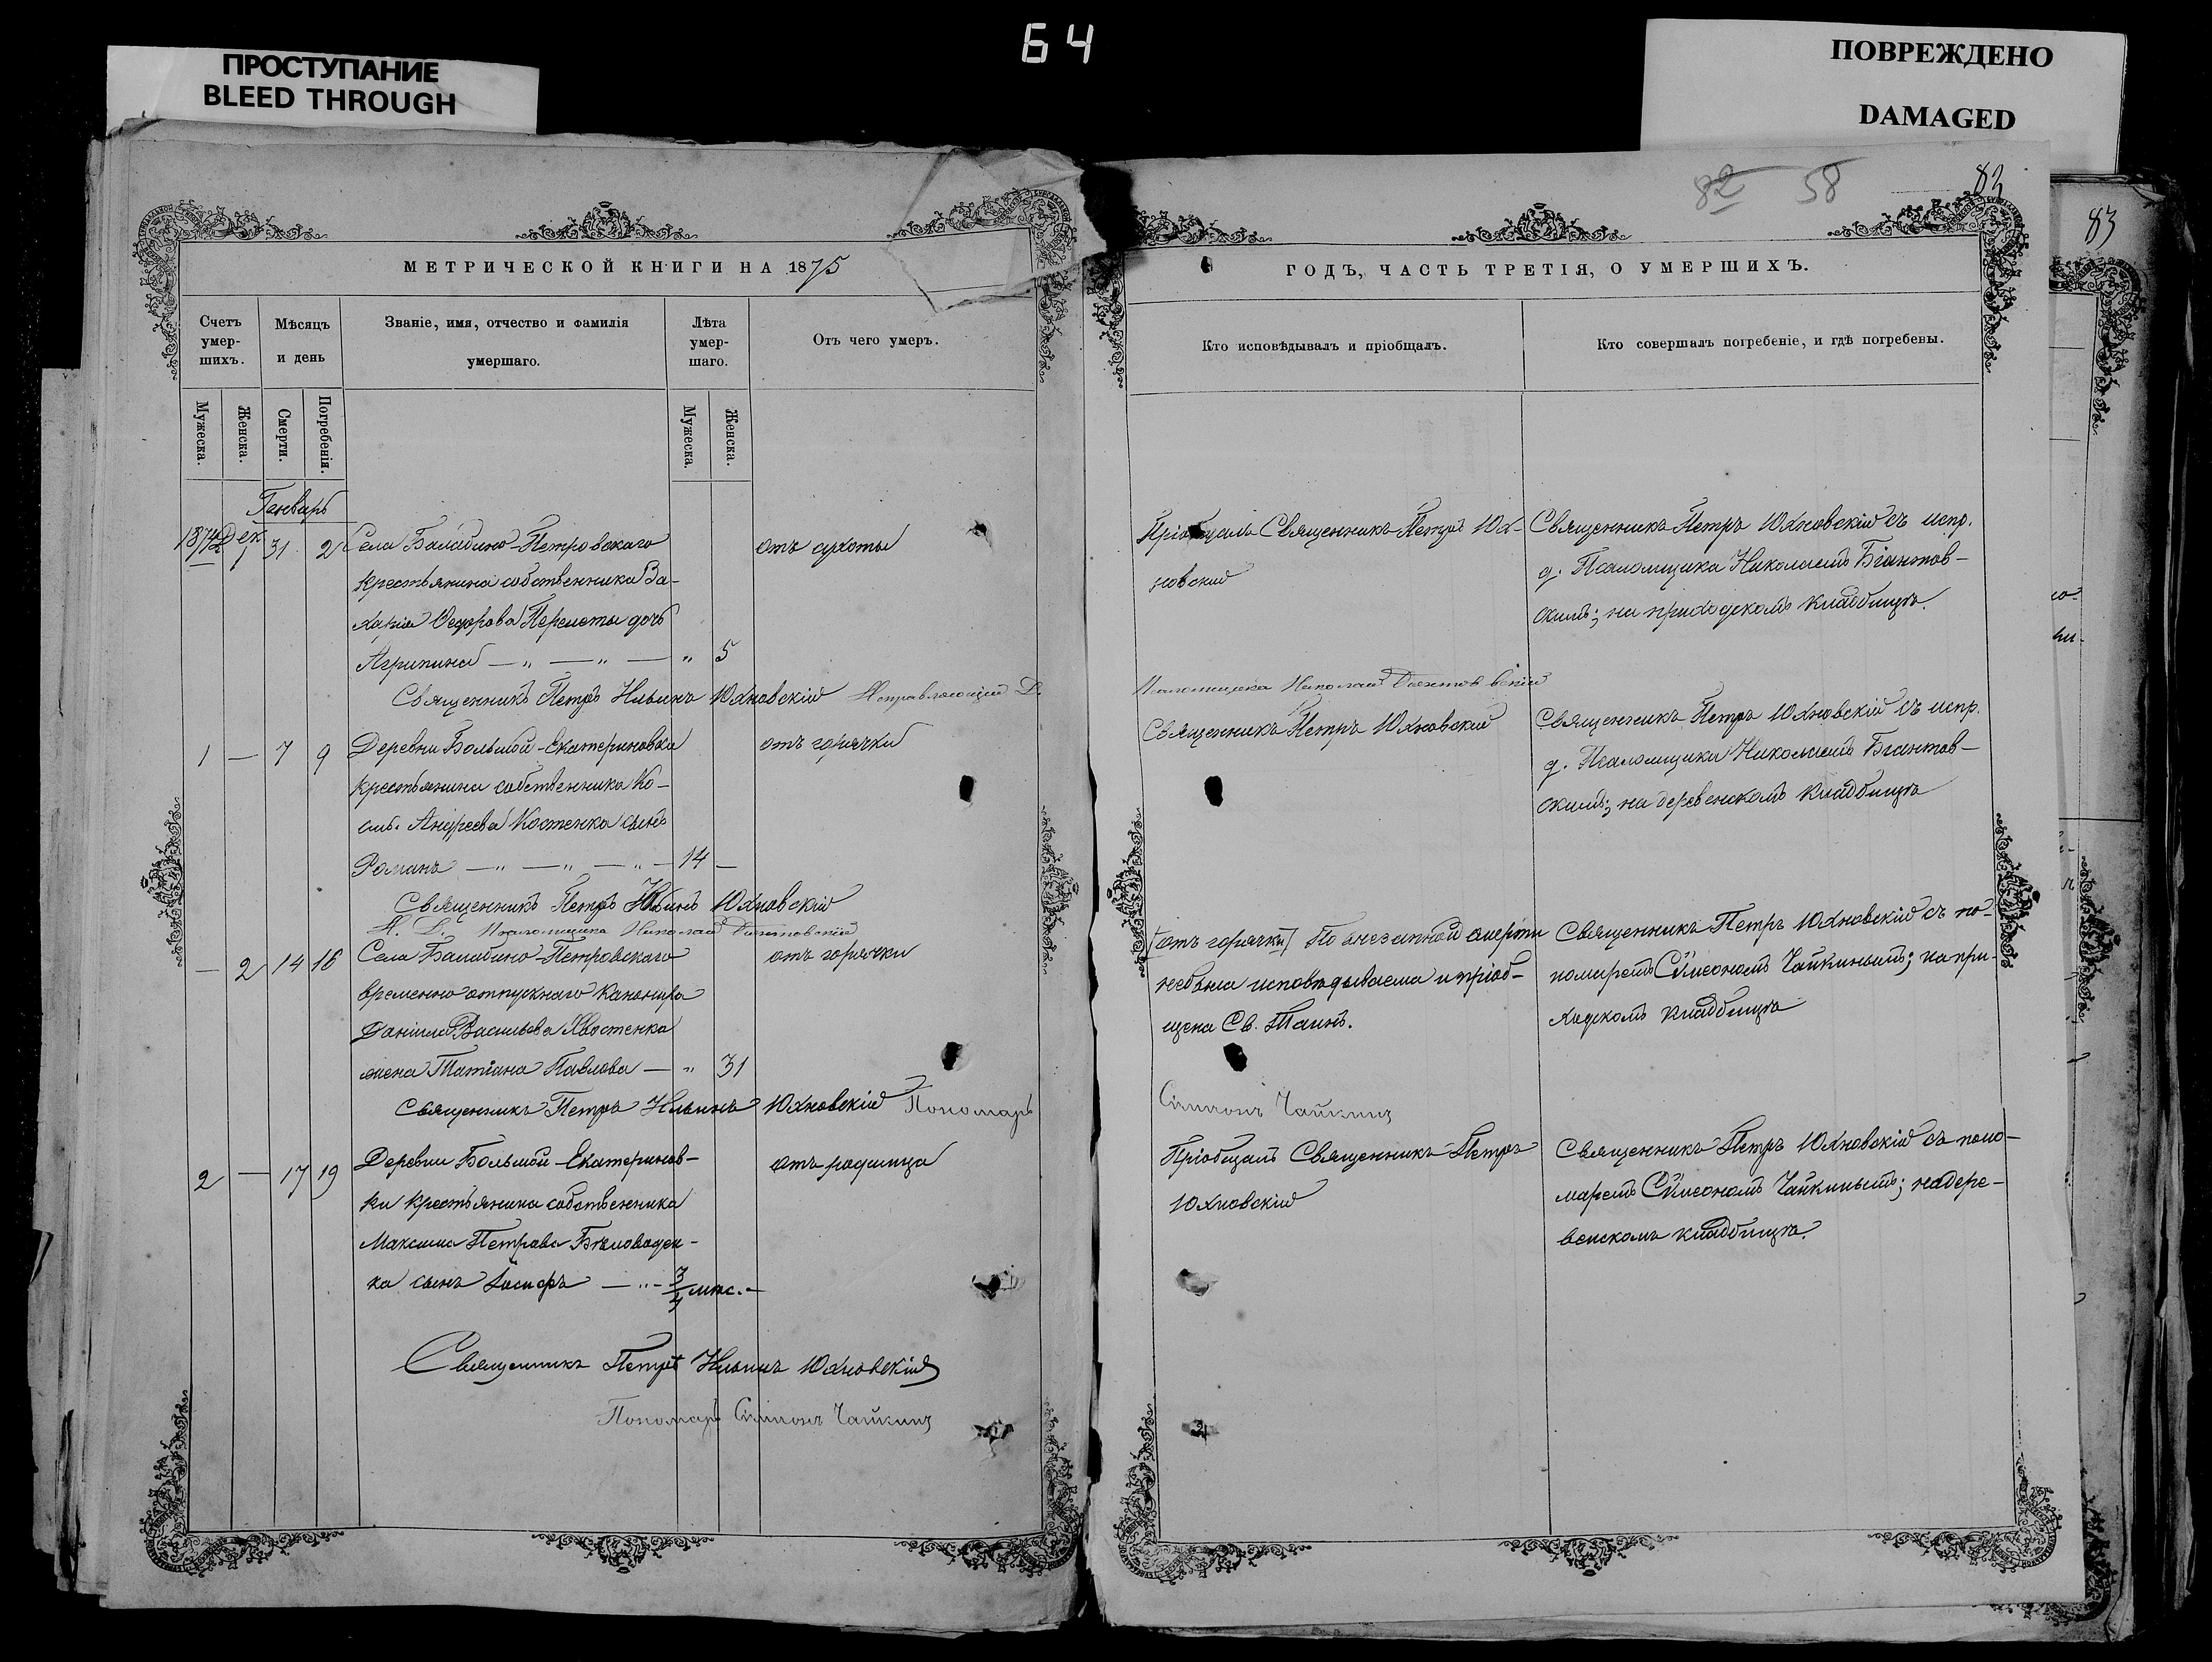 64
ПРОСТУПАНИЕ
BLEED THROUGH
ПОВРЕЖДЕНО
DAMAGED
82 58
82
83
МЕТРИЧЕСКОЙ КНИГИ НА 1875
Счетъ умер-шихъ.
Мѣсяцъ и день
Званіе, имя, отчество и фамилія умершаго.
Лѣта умер-шаго.
Отъ чего умеръ.
Мужеска.
Женска.
Смерти.
Погребенія.
Мужеска.
Женска.
Генварь
1874 Дек.
1 31 2 Села Балабино-Петровскаго отъ сухоты
крестьянина собственника За-
харія Ѳедорова Перелеты дочь
Агрипина — „ — „ — „ 5
Священникъ Петръ Ильинъ Юхновскій Исправляющій Д.
1 — 7 9 Деревни Большой-Екатериновки отъ горячки
крестьянина собственника Ко-
сьмы Андреева Костенка сынъ
Романъ — „ — „ — „ — 14 —
Священникъ Петръ Ильинъ Юхновскій
И. Д. Псаломщика Николай
— 2 14 16 Села Балабино-Петровскаго отъ горячки
временно отпускнаго канонира
Даніила Васильева Хвостенка
жена Татіана Павлова — „ 31
Священникъ Петръ Ильинъ Юхновскій Пономарь
2 — 17 19 Деревни Большой-Екатеринов- отъ родимца
ки крестьянина собственника
Максима Петрова Бѣловоден-
ка сынъ Іосифъ — „ - 3/4 мѣс. -
Священникъ Петръ Ильинъ Юхновскій
Пономарь Симеонъ Чайкинъ
ГОДЪ, ЧАСТЬ ТРЕТІЯ, О УМЕРШИХЪ.
Кто исповѣдывалъ и пріобщалъ.
Кто совершалъ погребеніе, и гдѣ погребены.
Пріобщалъ Священникъ Петръ Юх-
новскій
Священникъ Петръ Юхновскій съ испр.
д. Псаломщика Николаемъ
скимъ; на приходскомъ кладбищѣ.
Псаломщика Николай
Священникъ Петръ Юхновскій
Священникъ Петръ Юхновскій съ испр.
д. Псаломщика Николаемъ
скимъ; на деревенскомъ кладбищѣ
(отъ горячки) По внезапной смерти
небыла исповѣдываема и пріоб-
щена Св. Таинъ.
Священникъ Петръ Юхновскій съ по-
номаремъ Симеономъ Чайкинымъ; на при-
ходскомъ кладбищѣ
Симеонъ Чайкинъ
Пріобщалъ Священникъ Петръ
Юхновскій
Священникъ Петръ Юхновскій съ поно-
маремъ Симеономъ Чайкинымъ; на дере-
венскомъ кладбищѣ.